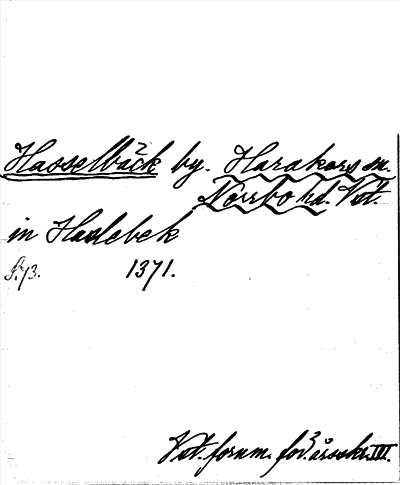 Hasselbäck by. Harakers sn.
Norrbo hd. Vst.
in Haslebek
S. 73. 1371.
Vst. fornm. för. årsskr. III.